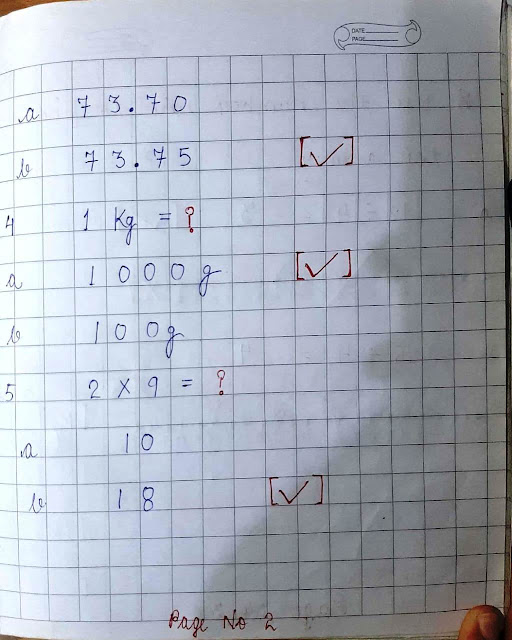 DATE
PAGE
a 73.70
b 73.75 [✓]
4 1 Kg = ?
a 1000g [✓]
b 100g
5 2 x 9 = ?
a 10
b 18 [✓]
Page No 2